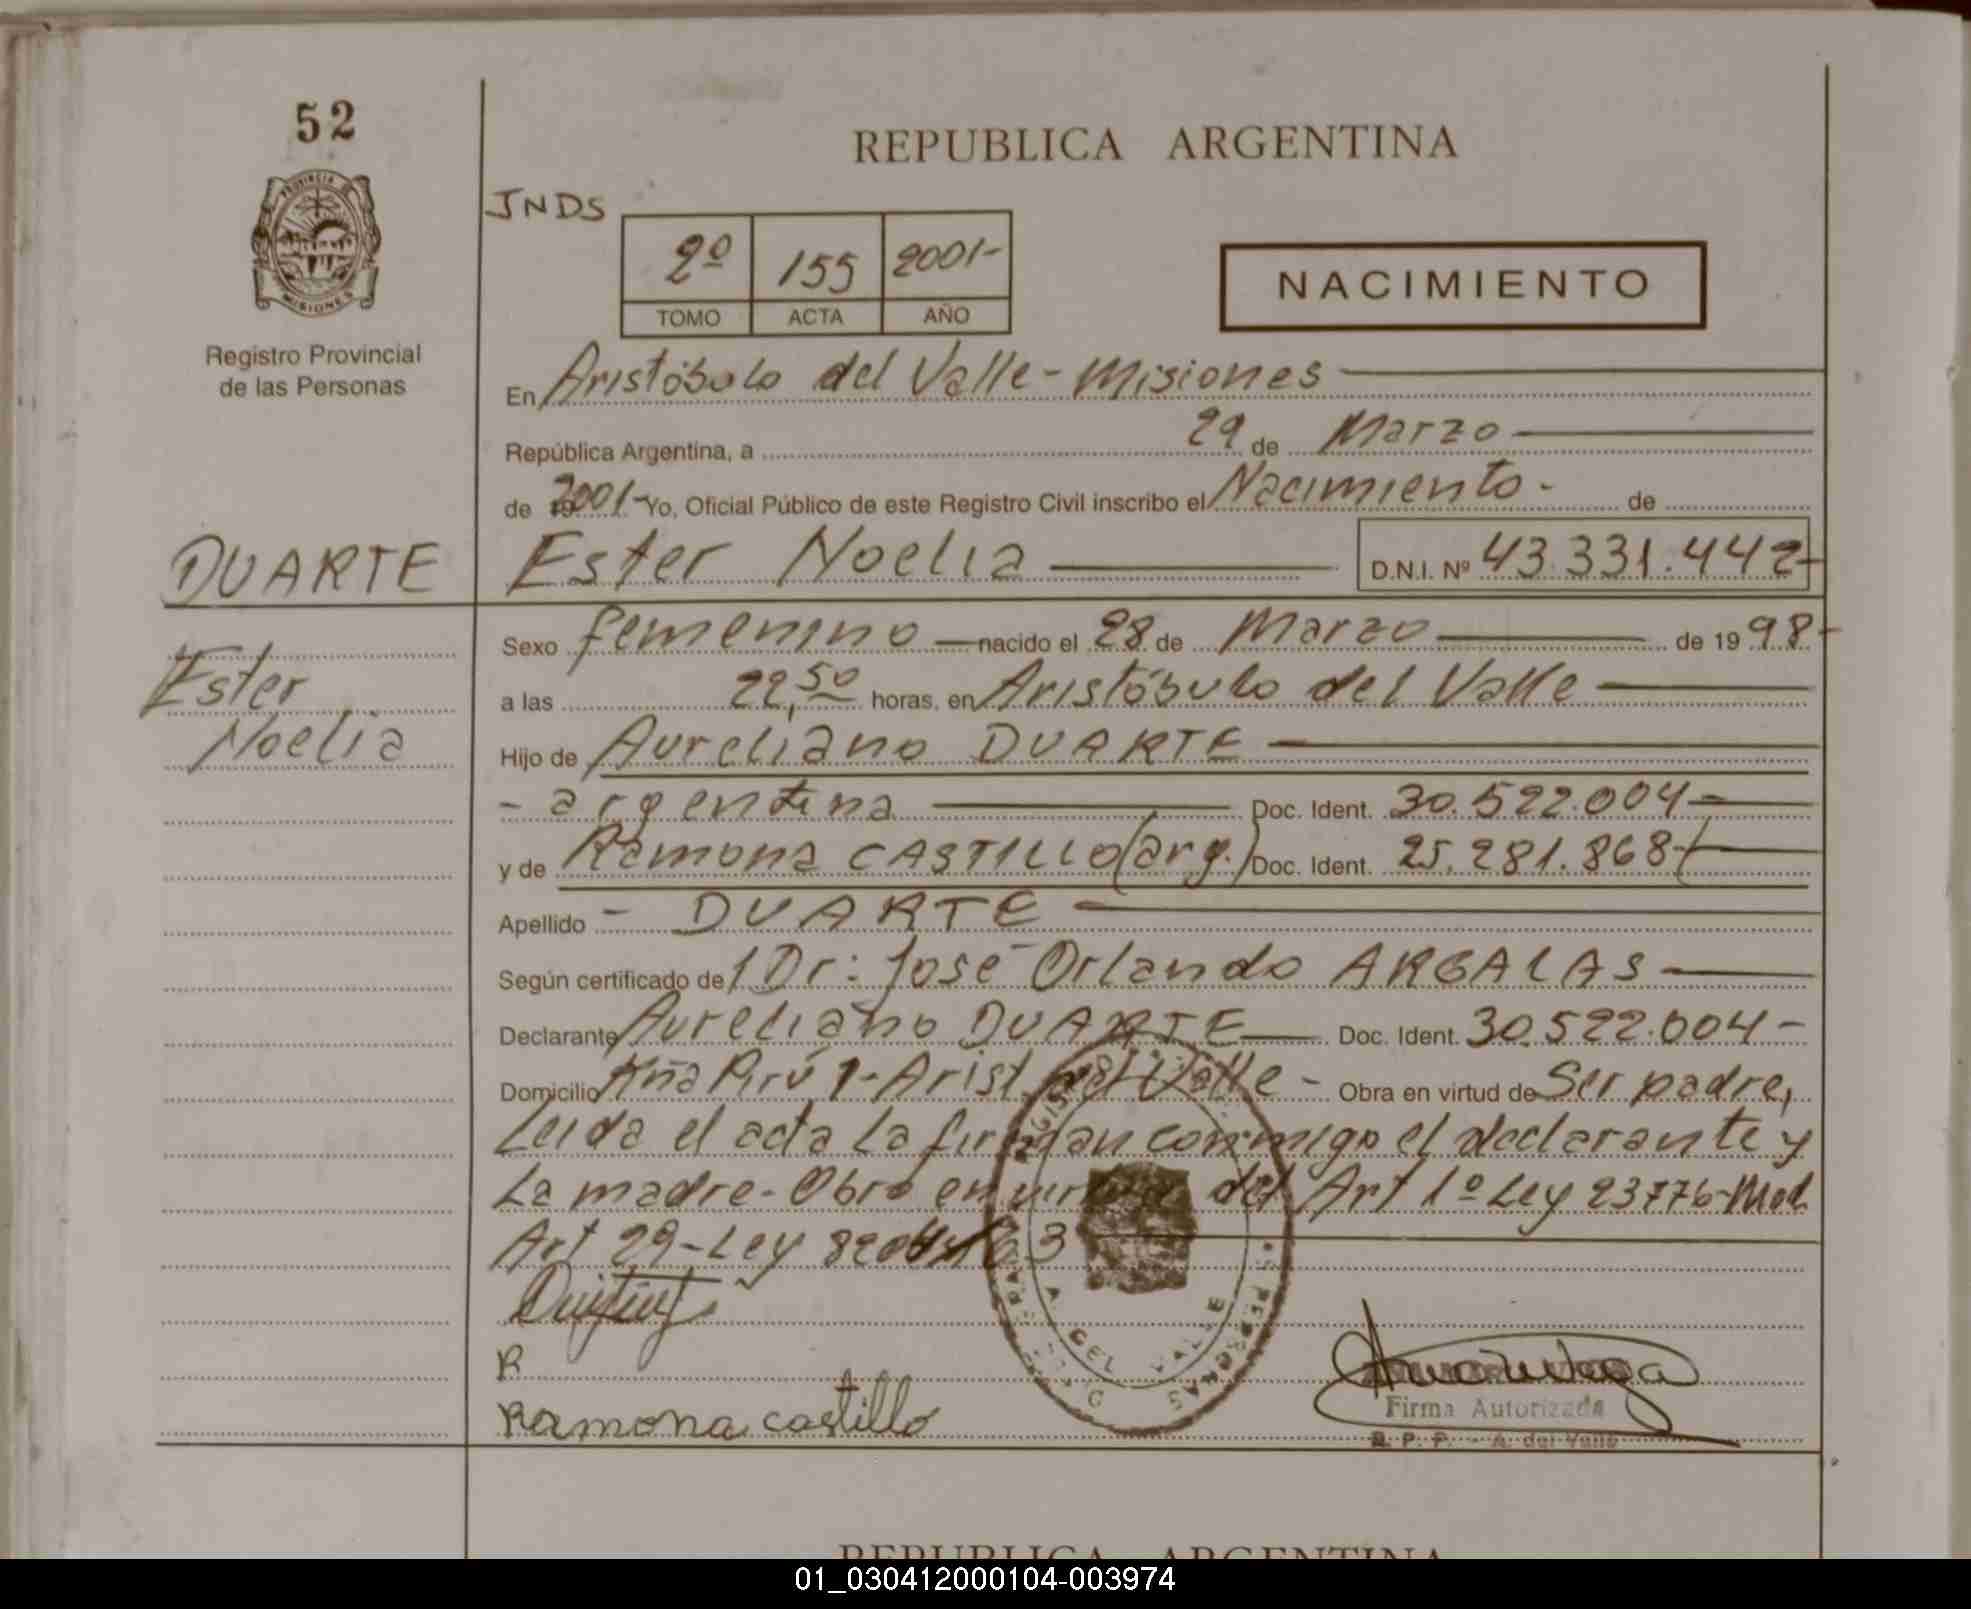 52
REPUBLICA ARGENTINA
PROVINCIA DE
MISIONES
JNDS
2º 155 2001-
TOMO ACTA AÑO
NACIMIENTO
Registro Provincial
de las Personas
En Aristóbulo del Valle - Misiones
República Argentina, a 29 de Marzo
de 2001- Yo, Oficial Público de este Registro Civil inscribo el Nacimiento - de
DUARTE Ester Noelia D.N.I. Nº 43.331.442-
Sexo femenino nacido el 28 de Marzo de 19 98-
Ester
a las 22,50 horas, en Aristóbulo del Valle
Noelia
Hijo de Aureliano DUARTE
- argentina Doc. Ident. 30.522.004-
y de Ramona CASTILLO (arg.) Doc. Ident. 25.281.868-
Apellido - DUARTE
Según certificado de Dr: José Orlando
Declarante Aureliano DUARTE Doc. Ident. 30.522.004-
Domicilio Kña Pirú 1 - Arist. del Valle - Obra en virtud de Ser padre,
Leida el acta la firman conmigo el declarante y
La madre - Obro en virtud del Art 1º Ley 23776-Mod.
Art 29 - Ley 8204
DEL VALLE
PERSONAS
R
Ramona castillo
Firma Autorizada
R. P. P. - A. del Valle
REPUBLICA ARGENTINA
01_030412000104-003974